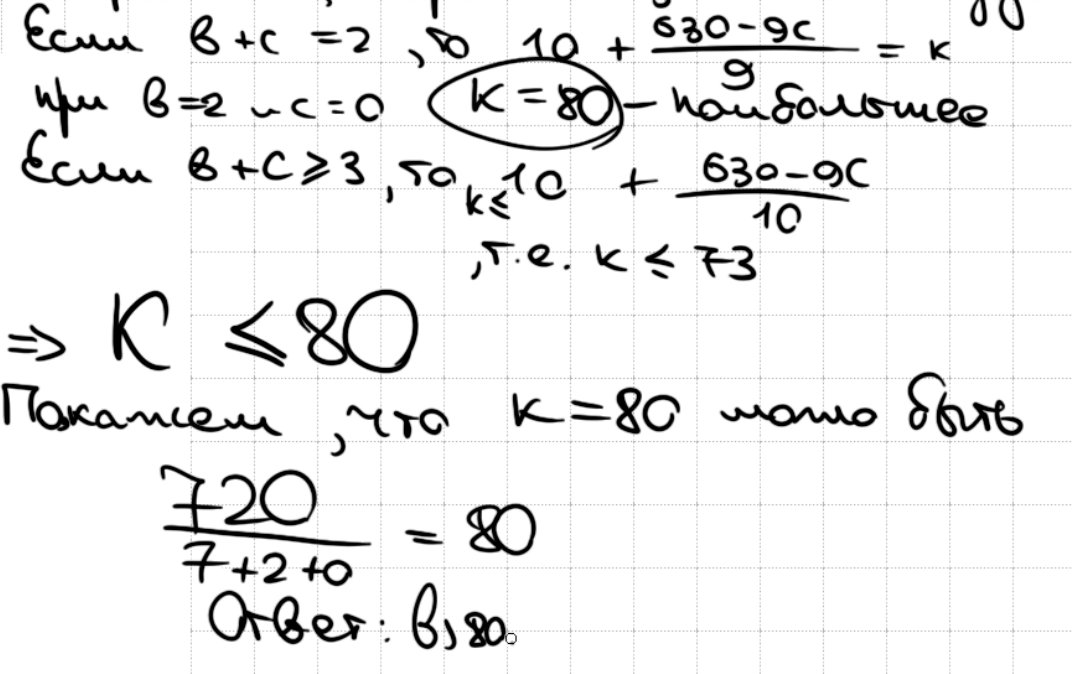 Если в+с =2, то 10 + (630-9с)/9 = к
при в=2 и с=0 к=80 - наибольшее
Если в+с ≥ 3, то к ≤ 10 + (630-9с)/10
, т.е. к ≤ 73
⇒ К ≤ 80
Покажем, что к=80 могло быть
720/(7+2+0) = 80
Ответ: в) 80